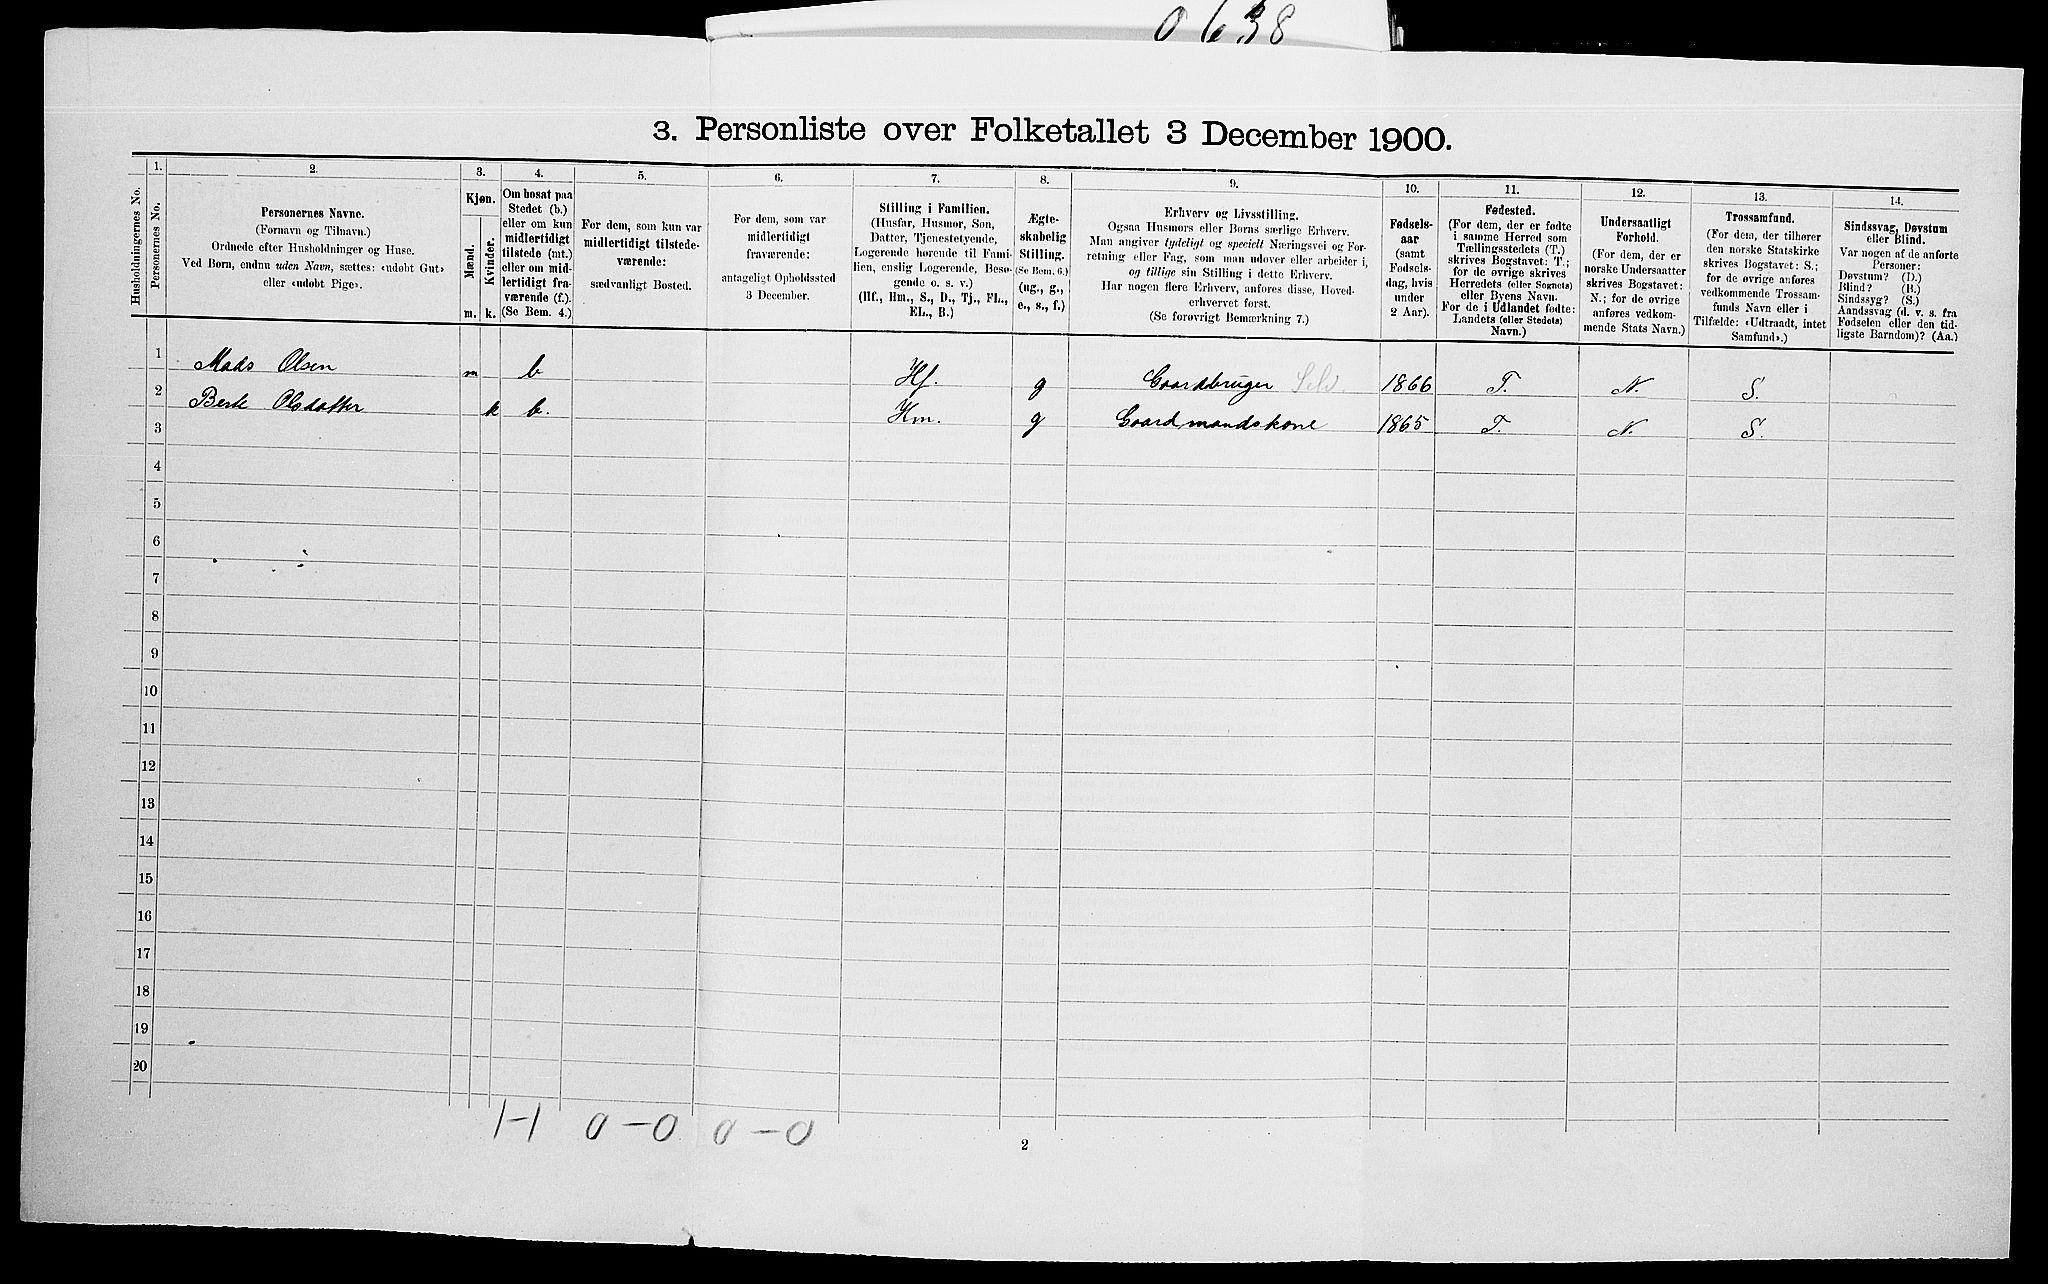 0638
3. Personliste over Folketallet 3 December 1900.
Husholdningernes No.
1.
Personernes No.
2.
Personernes Navne.
(Fornavn og Tilnavn.)
Ordnede efter Husholdninger og Huse.
Ved Børn, endnu uden Navn, sættes: «udøbt Gut»
eller «udøbt Pige».
3.
Kjøn.
Mænd.
Kvinder.
m. k.
4.
Om bosat paa
Stedet (b.)
eller om kun
midlertidigt
tilstede (mt.)
eller om mid-
lertidigt fra-
værende (f.).
(Se Bem. 4.)
5.
For dem, som kun var
midlertidigt tilstede-
værende:
sædvanligt Bosted.
6.
For dem, som var
midlertidigt
fraværende:
antageligt Opholdssted
3 December.
7.
Stilling i Familien.
(Husfar, Husmor, Søn,
Datter, Tjenestetyende,
Logerende hørende til Fami-
lien, enslig Logerende, Besø-
gende o. s. v.)
(Hf., Hm., S., D., Tj., FL.,
EL., B.)
8.
Ægte-
skabelig
Stilling.
(Se Bem. 6.)
(ug., g.,
e., s., f.)
9.
Erhverv og Livsstilling.
Ogsaa Husmors eller Børns særlige Erhverv.
Man angiver tydeligt og specielt Næringsvei og For-
retning eller Fag, som man udøver eller arbeider i,
og tillige sin Stilling i dette Erhverv.
Har nogen flere Erhverv, anføres disse, Hoved-
erhvervet først.
(Se forøvrigt Bemærkning 7.)
10.
Fødsels-
aar
(samt
Fødsels-
dag, hvis
under
2 Aar).
11.
Fødested.
(For dem, der er fødte
i samme Herred som
Tællingsstedets (T.)
skrives Bogstavet: T.;
for de øvrige skrives
Herredets (eller Sognets)
eller Byens Navn.
For de i Udlandet fødte:
Landets (eller Stedets)
Navn.)
12.
Undersaatligt
Forhold.
(For dem, der er
norske Undersaatter
skrives Bogstavet:
N.; for de øvrige
anføres vedkom-
mende Stats Navn.)
13.
Trossamfund.
(For dem, der tilhører
den norske Statskirke
skrives Bogstavet: S.;
for de øvrige anføres
vedkommende Trossam-
funds Navn eller i
Tilfælde: «Udtraadt, intet
Samfund».)
14.
Sindssvag, Døvstum
eller Blind.
Var nogen af de anførte
Personer:
Døvstum? (D.)
Blind? (B.)
Sindssyg? (S.)
Aandssvag (d. v. s. fra
Fødselen eller den tid-
ligste Barndom)? (Aa.)
1 Mads Olsen m b Hf. g Gaardbruger Selv. 1866 T. N. S.
2 Berte Olsdatter k b. Hm. g Gaardmandskone 1865 T. N. S.
3
4
5
6
7
8
9
10
11
12
13
14
15
16
17
18
19
20
1-1 0-0 0-0
2